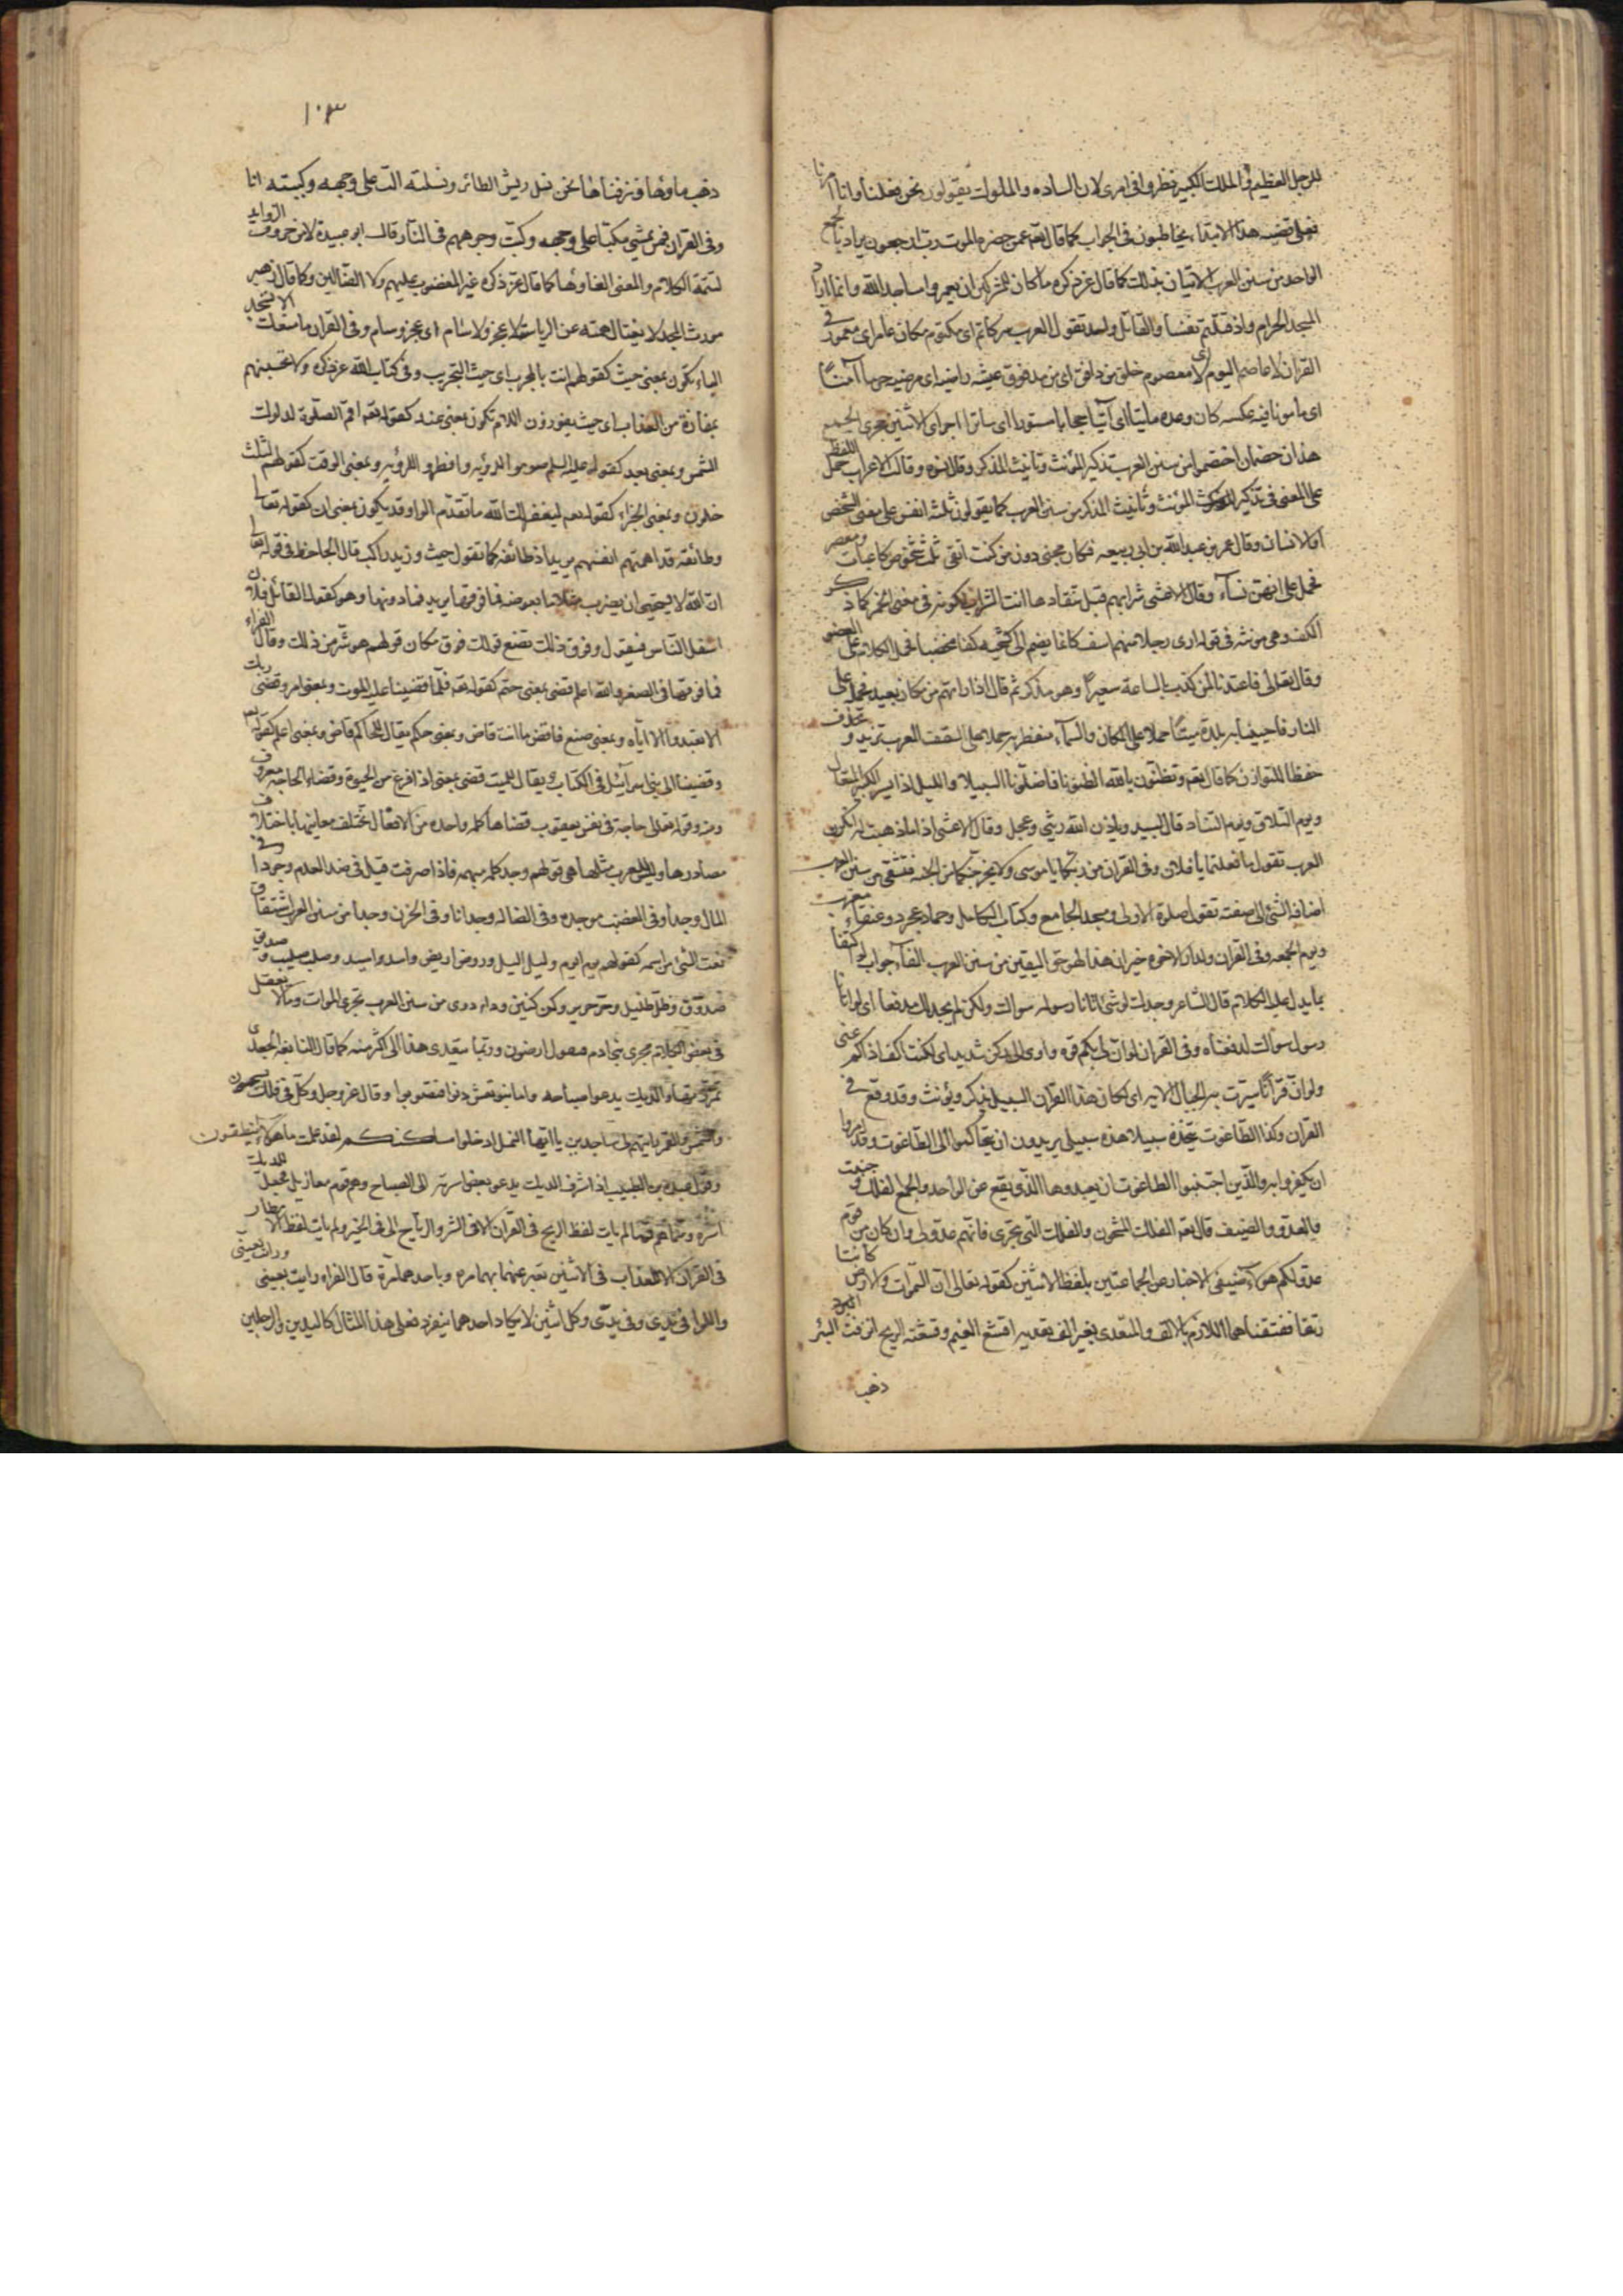 للرجل العظيم والملك الكبير نظروا فى امرى لان الساده والملوك يقولون نحن فعلنا وانا امرنا
فعلى قضيه هذا الابتداء يخاطبون فى الجواب كما قال تعم عمن حضره الموت رب ارجعون يراد بالجمع
الواحد من سنن العرب الاتيان بذلك كما قال عز ذكره ما كان للمشركين ان يعمروا مساجد الله وانما اراد
المسجد الحرام واذ قتلتم نفسا والقاتل واحد تقول العرب سر كاتم اى مكتوم مكان عامر اى معمور فى
القران لا عاصم اليوم اى لا معصوم خلق من ماء دافق اى من مدفوق عيشه راضيه اى مرضيه حرما آمنا
اى مأمونا فيه عكسه كان وعده مأتيا اى آتيا حجابا مستورا اى ساترا اجراى الاثنين مجرى الجمع
هذان خصمان اختصموا من سنن العرب تذكير المؤنث وتأنيث المذكر وقال نسوه وقالت الاعراب حمل اللفظ
على المعنى فى تذكير المؤنث وتأنيث المذكر من سنن العرب كما يقولون ثلثه انفس على معنى الشخص
او الانسان وقال عمر بن عبدالله بن ابى ربيعه فكان مجنى دون من كنت اتقى ثلث شخوص كاعبات ومعصر
فحمل على انهن نساء وقال الاعشى شرابهم قبل تنفادها انث الشراب لكونه فى معنى الخمر كما ذكر
الكف وهى مونثه فى قوله ارى رجلا منهم اسف كانما يضم الى كشحيه كفا مخضبا فحمل الكلام على العضو
وقال تعالى فاعتدنا لمن كذب بالساعة سعيرا وهو مذكر ثم قال اذا راتهم من مكان بعيد فحمله على
النار فاحيينا به بلدة ميتا حملا على المكان والسماء منفطر به حملا على السقف العرب تزيد وتحذف
حفظا للتوازن كما قال تعم وتظنون بالله الظنونا فاضلونا السبيلا والليل اذا يسر الكبير المتعال
ويوم التلاق ويوم التناد قال لبيد وباذن الله ريثى وعجل وقال الاعشى اذا ما ذهبت له انكرن
العرب تقول ما فعلتما يا فلان وفى القران من ربكما يا موسى ولا يخرجنكما من الجنه فتشقى من سنن العرب
اضافه الشئ الى صفته تقول صلوة الاولى ومسجد الجامع وكتاب الكامل وحماد عجرد وعنقاء مغرب
ويوم الجمعه وفى القران ولدار الاخره خير ان هذا لهو حق اليقين من سنن العرب الغآء جواب لو اكتفا
بما يدل عليه الكلام قال الشاعر وجدك لو شئ اتانا رسوله سواك ولكن لم نجد لك مدفعا اى لو اتانا
رسول سواك لدفعناه وفى القران لو ان لى بكم قوه او اوى الى ركن شديد اى لكنت اكف اذاكم عنى
ولو ان قرآنا سيرت به الجبال الايه اى لكان هذا القران السبيل يذكر ويؤنث وقد وقع فى
القران وكذا الطاغوت يتخذه سبيلا هذه سبيلى يريدون ان يتحاكموا الى الطاغوت وقد امروا
ان يكفروا به والذين اجتنبوا الطاغوت ان يعبدوها الذى يقع عن الواحد والجمع الفلك وجنب
والعدو والضيف قال تعم الفلك المشحون والفلك التى تجرى فانهم عدو لى وان كان من قوم
عدو لكم هؤلاء ضيفى الاخبار عن الجماعتين بلفظ الاثنين كقوله تعالى ان السموات والارض كانتا
رتقا ففتقناهما اللازم بالالف والمتعدى بغير الف تعديه اقشع الغيم وقشعته الريح انزفت البئر
ذهب
١٠٣
ذهب ماؤها ونزفناها نحن نسل ريش الطائر ونسلته اكب على وجهه وكببته انا
وفى القران فمن يمشى مكبا على وجهه وكبت وجوههم فى النار قال ابو عبيدة لا من حروف الزوايد
لتتمة الكلام والمعنى الغاوها كما قال عز ذكره غير المغضوب عليهم ولا الضالين وكما قال زهير
مورث المجد لا يغتال همته عن الرياسه لا عجز ولا سأم اى عجز وسأم وفى القران ما منعك الا تسجد
الباء تكون بمعنى حيث كقولهم انت بالمجرب اى حيث التجريب وفى كتاب الله عز ذكره ولا تحسبنهم
بمفازة من العذاب اى حيث يفوزون اللام تكون بمعنى عند كقوله تعم اقم الصلوة لدلوك
الشمس وبمعنى بعد كقوله عليه السلم صوموا لرؤيه وافطروا لرؤيه وبمعنى الوقت كقولهم لثلث
خلون وبمعنى الجزاء كقوله تعم ليغفر لك الله ما تقدم الواو قد يكون بمعنى ان كقوله تعالى
وطائفة قد اهمتهم انفسهم يريد اذ طائفه كما تقول جيت وزيد راكب قال الجاحظ فى قوله تعالى
ان الله لا يستحيى ان يضرب مثلا ما بعوضه فما فوقها يريد فما دونها وهو كقول القائل فلان
اسفل الناس فيقول وفوق ذلك تضع قولك فوق مكان قولهم هو شر من ذلك وقال الفراء
فما فوقها فى الصغر والله اعلم قضى بمعنى حتم كقوله تعم فلما قضينا عليه الموت وبمعنى امر وقضى ربك
الا تعبدوا الا اياه وبمعنى صنع فاقض ما انت قاض وبمعنى حكم يقال للحاكم قاض وبمعنى اعلم كقوله تعم
وقضينا الى بنى اسرآئيل فى الكتاب ويقال للميت قضى بمعنى اذ افرغ من الحيوة وقضاء الحاجه معروف
ومنه قوله تعالى حاجة فى نفس يعقوب قضاها كلمه واحده من الافعال تختلف معانيها باختلاف
مصادرها وليس للعرب مثلها هى قولهم وجد كلمه مبهمه فاذا صرفت قيل فى ضد العدم وجودا وفى
المال وجدا وفى الغضب موجده وفى الضاله وجدانا وفى الحزن وجدا من سنن العرب اشتقاق
نعت الشئ من اسمه كقولهم يوم ايوم وليل اليل وروض اريض واسد اسيد وصلب صليب وصديق
صدوق وظل ظليل وحر حرير وكن كنين وداء دوى من سنن العرب تجرى الموات وما لا يعقل
فى بعض الكلام مجرى بنى ادم فيقول ارضون وربما يتعدى هذا الى اكثر منه كما قال النابغه الجعدى
تمززتها والديك يدعو صباحه واما بنو نعش دنوا فتصوبوا وقال عز وجل وكل فى فلك يسبحون
والشمس والقمر رايتهم لى ساجدين يا ايها النمل ادخلوا مساكنكم لقد علمت ما هؤلاء ينطقون
وقال عبدة بن الطبيب اذ اشرف الديك يدعو بعض اسرته الى الصباح وهم قوم معازيل فجعل للديك
اسره وسماهم قوما لم يات لفظ الريح فى القران الا فى الشر والرياح الا فى الخير ولم يات لفظ الامطار
فى القران الا للعذاب فى الاثنين تعبر عنهما بهما مره وباحدهما مرة قال الفراء رايت بعينى ورات بعينى
والدار فى يدى وفى يدى وكل اثنين لا يكاد احدهما ينفرد فعلى هذا المثال كاليدين والرجلين